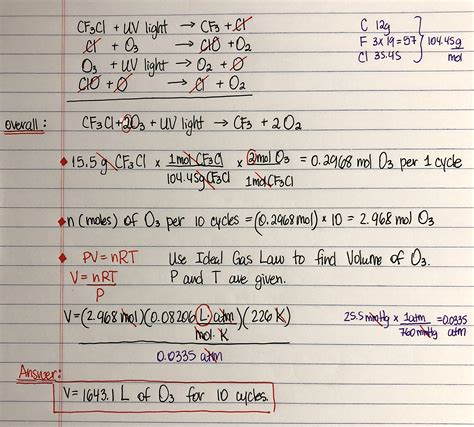 CF3Cl + UV light → CF3 + Cl
C 12g
Cl + O3 → ClO + O2
F 3x19=57 } 104.45g/mol
O3 + UV light → O2 + O
Cl 35.45
ClO + O → Cl + O2
overall: CF3Cl + 2O3 + UV light → CF3 + 2O2
♦ 15.5g CF3Cl x 1mol CF3Cl / 104.45g CF3Cl x 2mol O3 / 1mol CF3Cl = 0.2968 mol O3 per 1 cycle
♦ n (moles) of O3 per 10 cycles = (0.2968mol) x 10 = 2.968 mol O3
♦ PV = nRT Use Ideal Gas Law to find Volume of O3.
V = nRT / P P and T are given.
V = (2.968 mol)(0.08206 L atm / mol·K)(226 K) / 0.0335 atm
25.5 mmHg x 1atm / 760mmHg = 0.0335 atm
Answer:
V = 1643.1 L of O3 for 10 cycles.